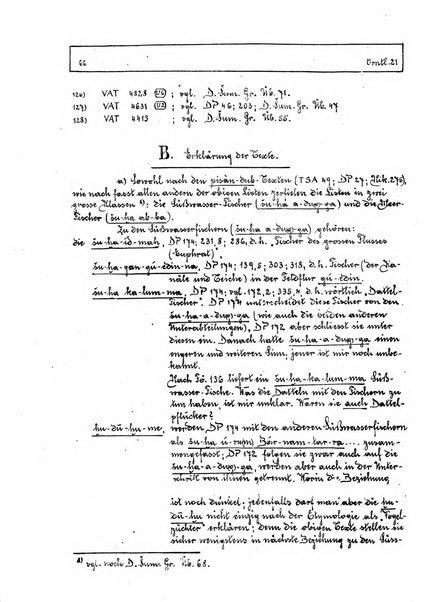 66 Orntl. 21
126) VAT 4828 ; vgl. D. Sum. Gr. Nb. 71.
127) VAT 4631 ; vgl. DP 46; 203; D. Sum. Gr. Nb. 47
128) VAT 4419 ; vgl. D. Sum. Gr. Nb. 55.
B. Erklärung der Texte.
a) Sowohl nach den pisán-dub-Texten (TSA 49; DP 27; Nik. 275),
wie nach fast allen andern der obigen Listen zerfallen die Listen in zwei
grosse Klassen: die Süßwasser-Fischer (šu-ḫa a-dug-ga) und die Meer-
Fischer (šu-ḫa ab-ba).
Zu den Süßwasserfischern (šu-ḫa a-dug-ga) gehören:
die šu-ḫa-id-maḫ, DP 174; 231,8; 286, d.h. „Fischer des grossen Flusses
(Euphrat)".
šu-ḫa-gan-gú-edin-na, DP 174; 139,5; 303; 318, d.h. Fischer (der Ka-
näle und Teiche) in der Feldflur gú-edin.
šu-ḫa ka-lum-ma, DP 174; vgl. 172,2; 335,4, d.h. wörtlich „Dattel-
fischer". DP 174 unterscheidet diese Fischer von den
šu-ḫa-a-dug-ga (wie auch die beiden anderen
Unterabteilungen), DP 172 aber schliesst sie unter
diesen ein. Danach hatte šu-ḫa-a-dug-ga einen
engeren und weiteren Sinn; jener ist mir noch unbe-
kannt.
Nach Fö. 136 liefert ein šu-ḫa ka-lum-ma Süß-
wasser-Fische. Was die Datteln mit den Fischern zu
tun haben, ist mir unklar. Wären sie auch Dattel-
pflücker?
ḫu-dŭ-ḫu-me, werden DP 174 mit den anderen Süßwasserfischern
als šu-ḫa Bár-nam-tar-ra.... zusam-
mengefasst; DP 172 folgen sie zwar auch auf die
šu-ḫa-a-dug-ga, werden aber auch in der Unter-
schrift von ihnen getrennt. Worin die Beziehung
ist noch dunkel; jedenfalls darf man aber die ḫu-
dŭ-ḫu nicht einzig nach der Etymologie als „Vogel-
züchter" erklären; denn die obigen Texte stellen sie
sicher wenigstens in nächste Beziehung zu den Süss-
1) vgl. noch D. Sum. Gr. Nb. 68.